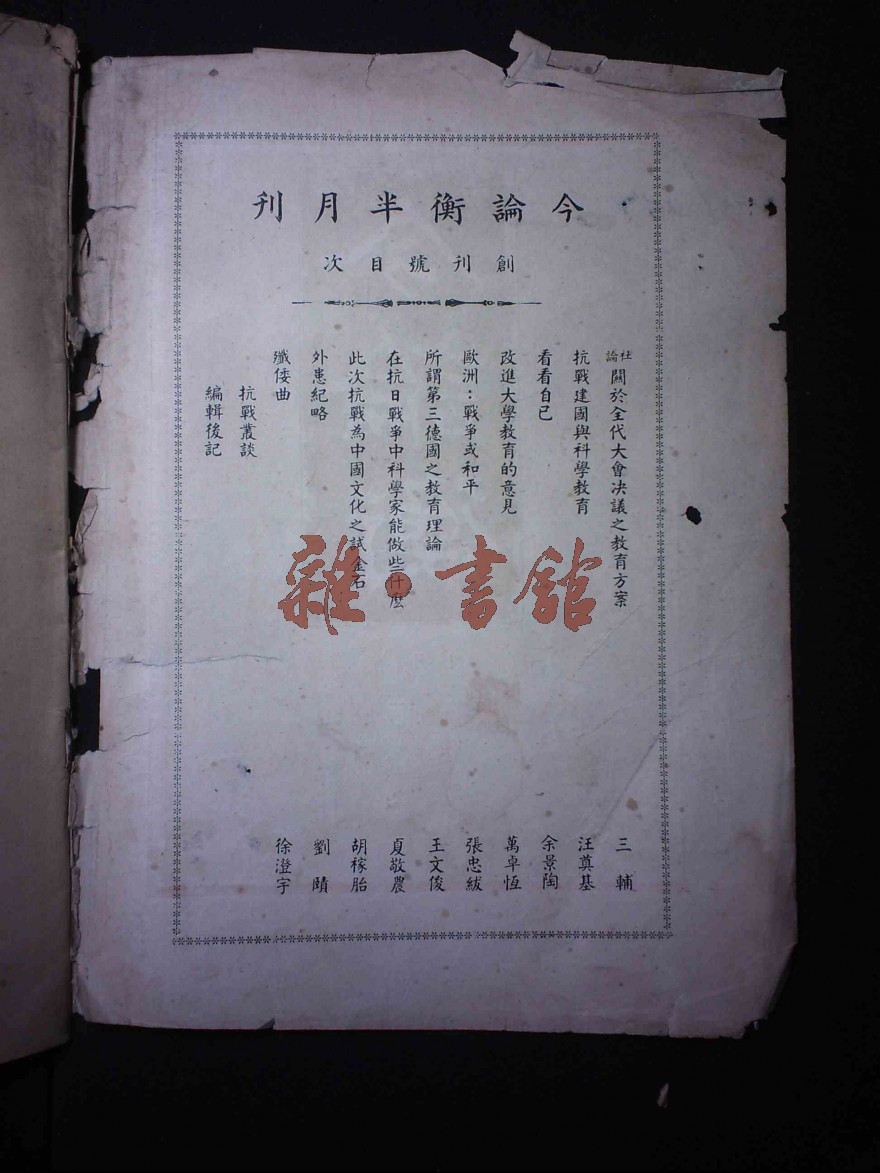 今論衡半月刊
創刊號目次
社論 關於全代大會决議之教育方案 三輔
抗戰建國與科學教育 汪奠基
看看自己 余景陶
改進大學教育的意見 萬卓恆
歐洲：戰爭或和平 張忠紱
所謂第三德國之教育理論 王文俊
在抗日戰爭中科學家能做些什麼 夏敬農
此次抗戰為中國文化之試金石 胡稼胎
外患紀略 劉賾
殲倭曲 徐澄宇
抗戰叢談
編輯後記
雜·書館